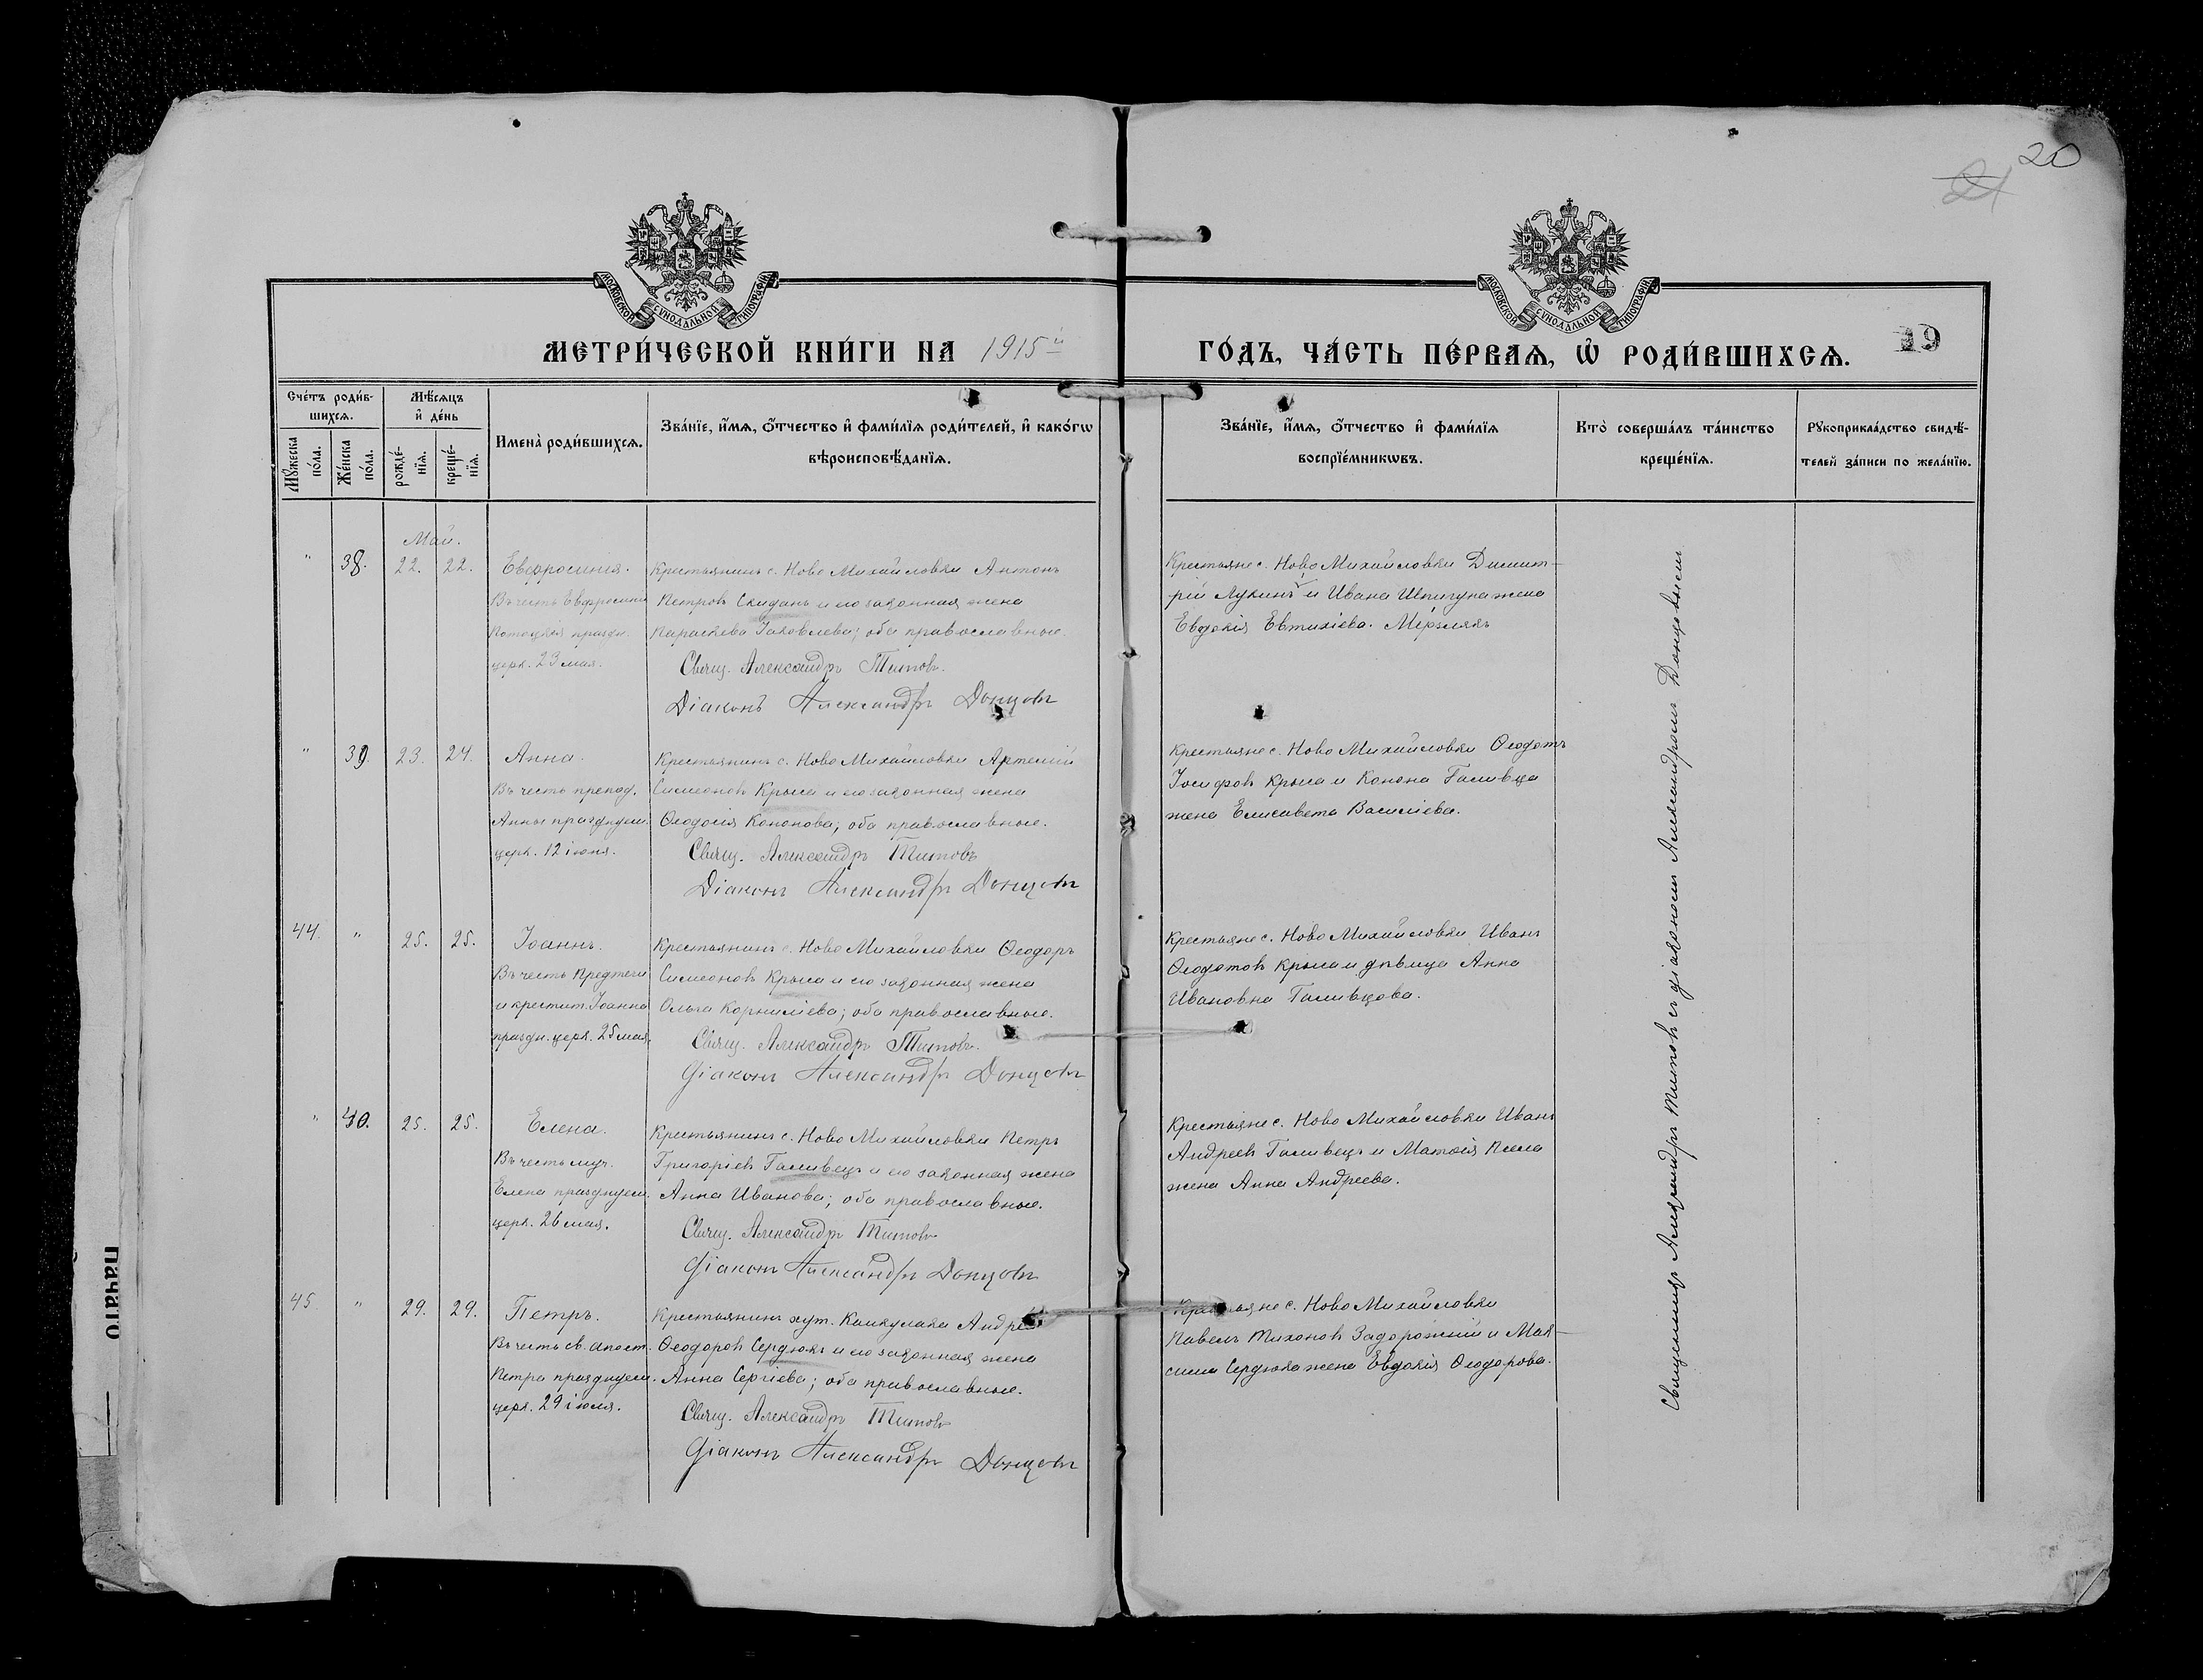 20
21
МОСКОВСКОЙ СѴНОДАЛЬНОЙ ТИПОГРАФІИ
МОСКОВСКОЙ СѴНОДАЛЬНОЙ ТИПОГРАФІИ
МЕТРИ́ЧЕСКОЙ КНИ́ГИ НА 1915й
ГО́ДЪ, ЧА́СТЬ ПЕ́РВАѦ, Ѡ҆ РОДИ́ВШИХСѦ.
19
Сче́тъ роди́в-
шихсѧ.
Мѣ́сѧцъ
и҆ де́нь
Мꙋ́жеска
по́ла.
Же́нска
по́ла.
рожде́-
нїѧ.
креще́-
нїѧ.
Имена̀ роди́вшихсѧ.
Зва́нїе, и҆́мѧ, ѻ҆́тчество и҆ фами́лїѧ роди́телей, и҆ како́гѡ
вѣроисповѣ́данїѧ.
Зва́нїе, и҆́мѧ, ѻ҆́тчество и҆ фами́лїѧ
воспрїе́мникѡвъ.
Кто̀ соверша́лъ та́инство
креще́нїѧ.
Рꙋкоприкла́дство свидѣ́-
телей за́писи по жела́нїю.
Май.
" 38. 22. 22. Евфросинія.
Въ честь Евфросиніи
Полоцкія праздн.
церк. 23 мая.
Крестьянинъ с. Ново Михайловки Антонъ
Петровъ Скиданъ и его законная жена
Параскева Іаковлева; оба православные.
Свящ. Александръ Титовъ.
Діаконъ Александръ Донцовъ
Крестьяне с. Ново Михайловки Димит-
рій Лукинъ и Ивана Шпигуна жена
Евдокія Евтихіева. Мерзлякъ
" 39. 23. 24. Анна.
Въ честь препод.
Анны празднуем.
церк. 12 іюня.
Крестьянинъ с. Ново Михайловки Артемій
Симеоновъ Крыса и его законная жена
Ѳеодосія Кононова; оба православные.
Свящ. Александръ Титовъ
Діаконъ Александръ Донцовъ
Крестьяне с. Ново Михайловки Ѳеодотъ
Іосифовъ Крыса и Конона Галивца
жена Елисавета Василіева.
44. " 25. 25. Іоаннъ.
Въ честь Предтечи
и крестит. Іоанна
праздн. церк. 25 мая.
Крестьянинъ с. Ново Михайловки Ѳеодоръ
Симеоновъ Крыса и его законная жена
Ольга Корниліева; оба православные.
Свящ. Александръ Титовъ.
Діаконъ Александръ Донцовъ
Крестьяне с. Ново Михайловки Иванъ
Ѳеодотовъ Крыса и дѣвица Анна
Ивановна Галивцова.
" 40. 25. 25. Елена.
Въ честь муч.
Елена празднуем.
церк. 26 мая.
Крестьянинъ с. Ново Михайловки Петръ
Григоріевъ Галивецъ и его законная жена
Анна Иванова; оба православные.
Свящ. Александръ Титовъ
Діаконъ Александръ Донцовъ
Крестьяне с. Ново Михайловки Иванъ
Андреевъ Галивецъ и Матѳія
жена Анна Андреева.
45. " 29. 29. Петръ.
Въ честь св. апост.
Петра празднуем.
церк. 29 іюня.
Крестьянинъ хут. Калкулака Андрей
Ѳеодоровъ Сердюкъ и его законная жена
Анна Сергіева; оба православные.
Свящ. Александръ Титовъ
Діаконъ Александръ Донцовъ
Крестьяне с. Ново Михайловки
Павелъ Тихоновъ Задорожній и Мак-
сима Сердюка жена Евдокія Ѳеодорова.
Священникъ Александръ Титовъ съ діакономъ Александромъ Донцовымъ
Начато